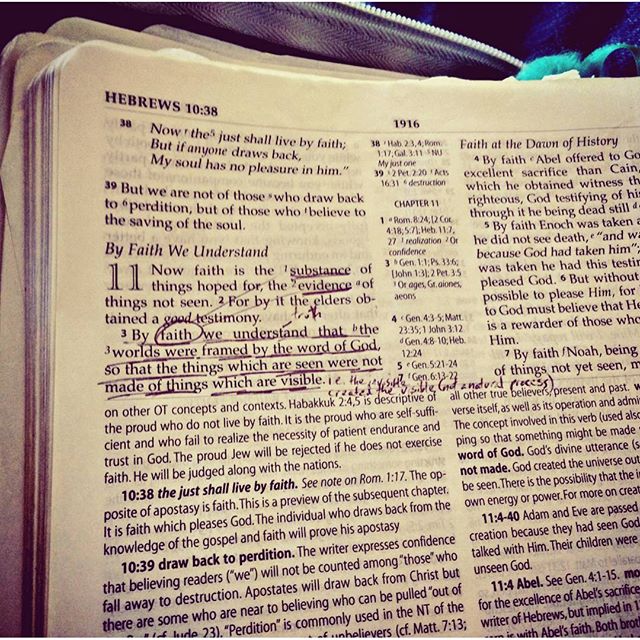 HEBREWS 10:38
1916
38 Now ʳthe⁵ just shall live by faith;
But if anyone draws back,
My soul has no pleasure in him."
39 But we are not of those ˢwho draw back
to ⁶perdition, but of those who ᵗbelieve to
the saving of the soul.
By Faith We Understand
11 Now faith is the ¹substance of
things hoped for, the ²evidence ᵃof
things not seen. ² For by it the elders ob-
tained a good testimony.
truth
³ By faith we understand that ᵇthe
³worlds were framed by the word of God,
so that the things which are seen were not
made of things which are visible.
i.e. the invisible
created the visible (God endured process)
38 ʳHab. 2:3, 4; Rom.
1:17; Gal. 3:11 ⁵NU
My just one
39 ˢ2 Pet. 2:20 ᵗActs
16:31 ⁶destruction
CHAPTER 11
1 ᵃRom. 8:24; [2 Cor.
4:18; 5:7]; Heb. 11:7,
27 ¹realization ²Or
confidence
3 ᵇGen. 1:1; Ps. 33:6;
[John 1:3]; 2 Pet. 3:5
³Or ages, Gr. aiones,
aeons
4 ᶜGen. 4:3-5; Matt.
23:35; 1 John 3:12
ᵈGen. 4:8-10; Heb.
12:24
5 ᵉGen. 5:21-24
7 ᶠGen. 6:13-22
Faith at the Dawn of History
⁴ By faith ᶜAbel offered to Go
excellent sacrifice than Cain,
which he obtained witness th
righteous, God testifying of his
through it he being dead still ᵈ
⁵ By faith Enoch was taken a
he did not see death, ᵉ"and wa
because God had taken him";
was taken he had this testim
pleased God. ⁶ But without
possible to please Him, for
to God must believe that H
is a rewarder of those who
Him.
⁷ By faith ᶠNoah, being
of things not yet seen, m
on other OT concepts and contexts. Habakkuk 2:4,5 is descriptive of
the proud who do not live by faith. It is the proud who are self-suffi-
cient and who fail to realize the necessity of patient endurance and
trust in God. The proud Jew will be rejected if he does not exercise
faith. He will be judged along with the nations.
10:38 the just shall live by faith. See note on Rom. 1:17. The op-
posite of apostasy is faith. This is a preview of the subsequent chapter.
It is faith which pleases God. The individual who draws back from the
knowledge of the gospel and faith will prove his apostasy
10:39 draw back to perdition. The writer expresses confidence
that believing readers ("we") will not be counted among "those" who
fall away to destruction. Apostates will draw back from Christ but
there are some who are near to believing who can be pulled "out of
(cf. Jude 23). "Perdition" is commonly used in the NT of the
unbelievers (cf. Matt. 7:13;
all other true believers, present and past. V
verse itself, as well as its operation and admi
The concept involved in this verb (used also
ping so that something might be made
word of God. God's divine utterance (s
not made. God created the universe out
be seen. There is the possibility that the i
own energy or power. For more on creat
11:4-40 Adam and Eve are passed
creation because they had seen God
talked with Him. Their children were
unseen God.
11:4 Abel. See Gen. 4:1-15. mo
for the excellence of Abel's sacrifice
writer of Hebrews, but implied in
is with Abel's faith. Both bro